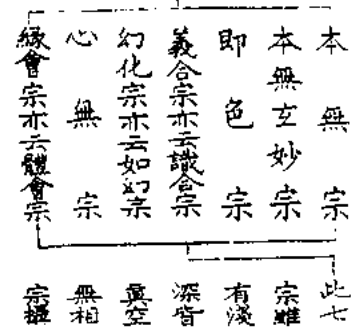 本無宗
本無玄妙宗
即色宗
義合宗亦云識合宗
幻化宗亦云如幻宗
心無宗
緣會宗亦云體會宗
此七
宗雖
有淺
深皆
眞空
無相
宗攝